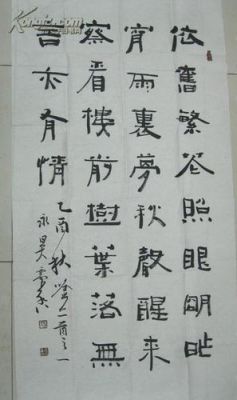 依舊繁花照眼明昨
宵雨裏夢秋聲醒來
察看樓前樹葉落無
言亦有情
乙酉秋二首之一
永昊